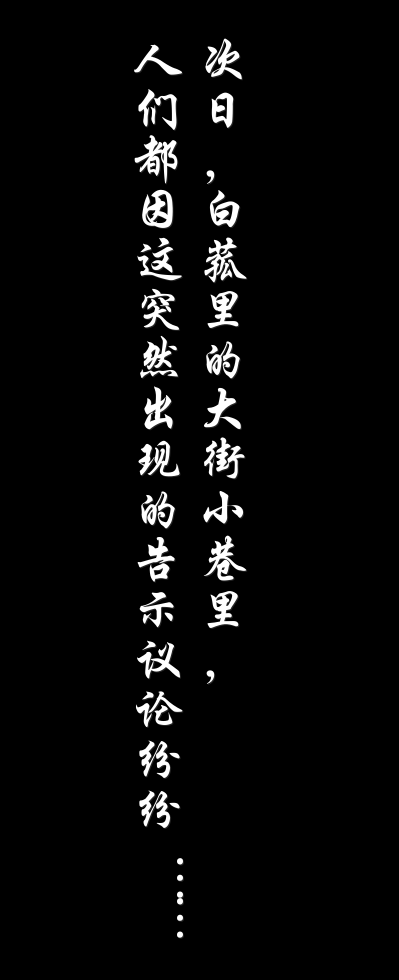 次日，白菰里的大街小巷里，
人们都因这突然出现的告示议论纷纷……